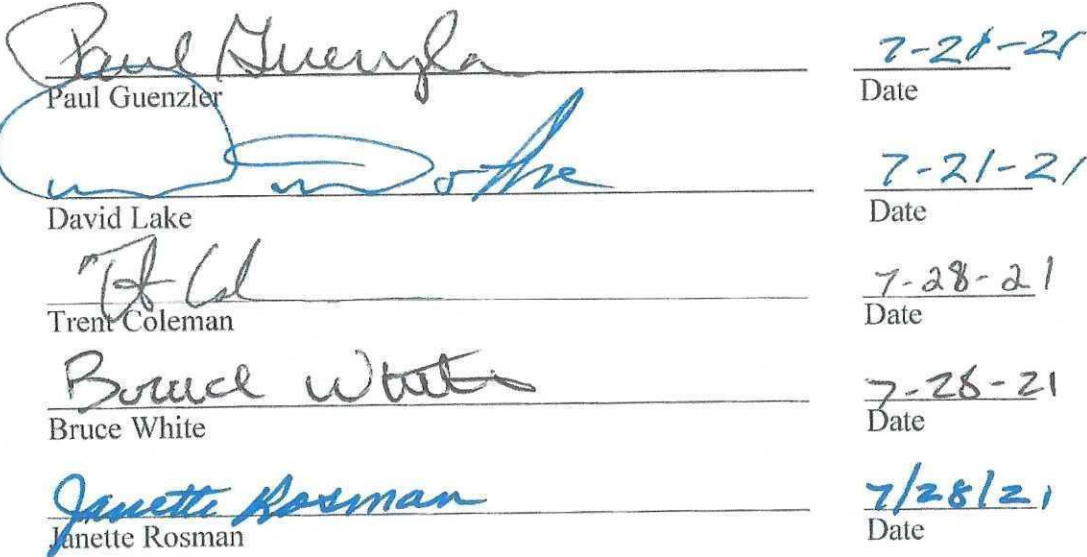 Paul Guenzler 7-28-21
Paul Guenzler Date
7-21-21
David Lake Date
7-28-21
Trent Coleman Date
Bruce White 7-28-21
Bruce White Date
Janette Rosman 7/28/21
Janette Rosman Date